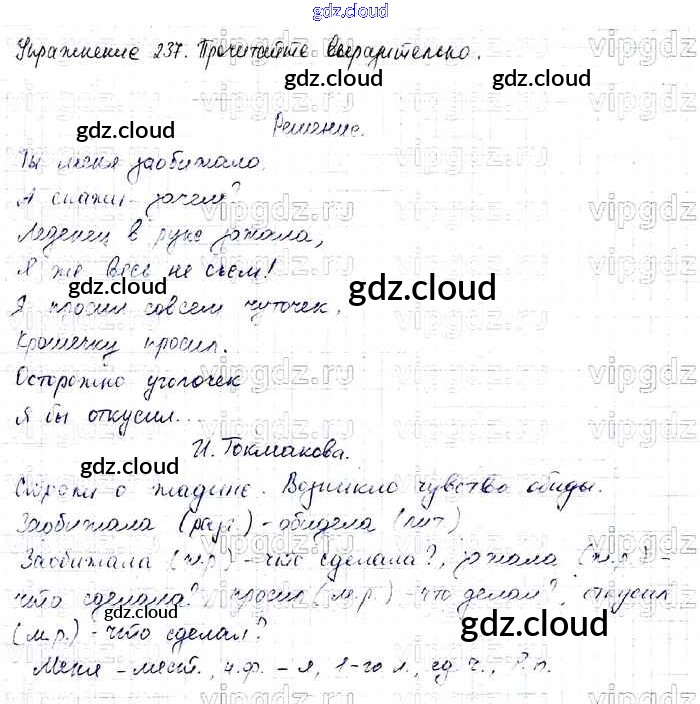 gdz.cloud
Упражнение 237. Прочитайте выразительно.
gdz.cloud
vipgdz.ru
gdz.cloud
Решение.
Ты меня заобижала.
А скажи - зачем?
Леденец в руке зажала,
Я же весь не съем!
gdz.cloud
Я просил совсем чуточек,
Крошечку просил.
Осторожно уголочек
Я бы откусил...
И. Токмакова.
gdz.cloud
gdz.cloud
Строки о жадине. Возникло чувство обиды.
Заобижала (разг.) - обидела (лит)
Заобижала (ж.р.) - что сделала?, зажала (ж.р.) -
что сделала?, просил (м.р.) - что делал?, откусил
gdz.cloud
gdz.cloud
(м.р.) - что сделал?
Меня - мест., н.ф. - я, 1-го л., ед.ч., Р.п.
gdz.cloud